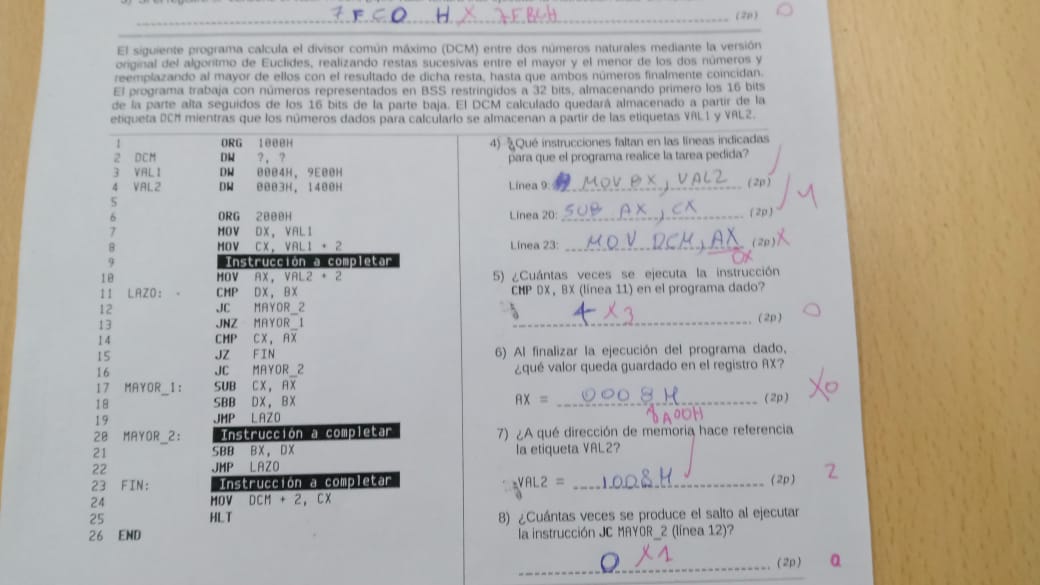 7FC0 H X 7FBCH (2p) 0
El siguiente programa calcula el divisor común máximo (DCM) entre dos números naturales mediante la versión
original del algoritmo de Euclides, realizando restas sucesivas entre el mayor y el menor de los dos números y
reemplazando al mayor de ellos con el resultado de dicha resta, hasta que ambos números finalmente coincidan.
El programa trabaja con números representados en BSS restringidos a 32 bits, almacenando primero los 16 bits
de la parte alta seguidos de los 16 bits de la parte baja. El DCM calculado quedará almacenado a partir de la
etiqueta DCM mientras que los números dados para calcularlo se almacenan a partir de las etiquetas VAL1 y VAL2.
1 ORG 1000H
2 DCM DW ?, ?
3 VAL1 DW 0004H, 9E00H
4 VAL2 DW 0003H, 1400H
5
6 ORG 2000H
7 MOV DX, VAL1
8 MOV CX, VAL1 + 2
9 Instrucción a completar
10 MOV AX, VAL2 + 2
11 LAZO: CMP DX, BX
12 JC MAYOR_2
13 JNZ MAYOR_1
14 CMP CX, AX
15 JZ FIN
16 JC MAYOR_2
17 MAYOR_1: SUB CX, AX
18 SBB DX, BX
19 JMP LAZO
20 MAYOR_2: Instrucción a completar
21 SBB BX, DX
22 JMP LAZO
23 FIN: Instrucción a completar
24 MOV DCM + 2, CX
25 HLT
26 END
4) ¿Qué instrucciones faltan en las líneas indicadas
para que el programa realice la tarea pedida?
Línea 9: MOV BX, VAL2 (2p)
Línea 20: SUB AX, CX (2p) 4
Línea 23: MOV DCM, AX (2p) X
DX
5) ¿Cuántas veces se ejecuta la instrucción
CMP DX, BX (línea 11) en el programa dado?
4 X 3 (2p) 0
6) Al finalizar la ejecución del programa dado,
¿qué valor queda guardado en el registro AX?
AX = 0008H (2p) X 0
8A00H
7) ¿A qué dirección de memoria hace referencia
la etiqueta VAL2?
VAL2 = 1008H (2p) 2
8) ¿Cuántas veces se produce el salto al ejecutar
la instrucción JC MAYOR_2 (línea 12)?
0 X 1 (2p) 0